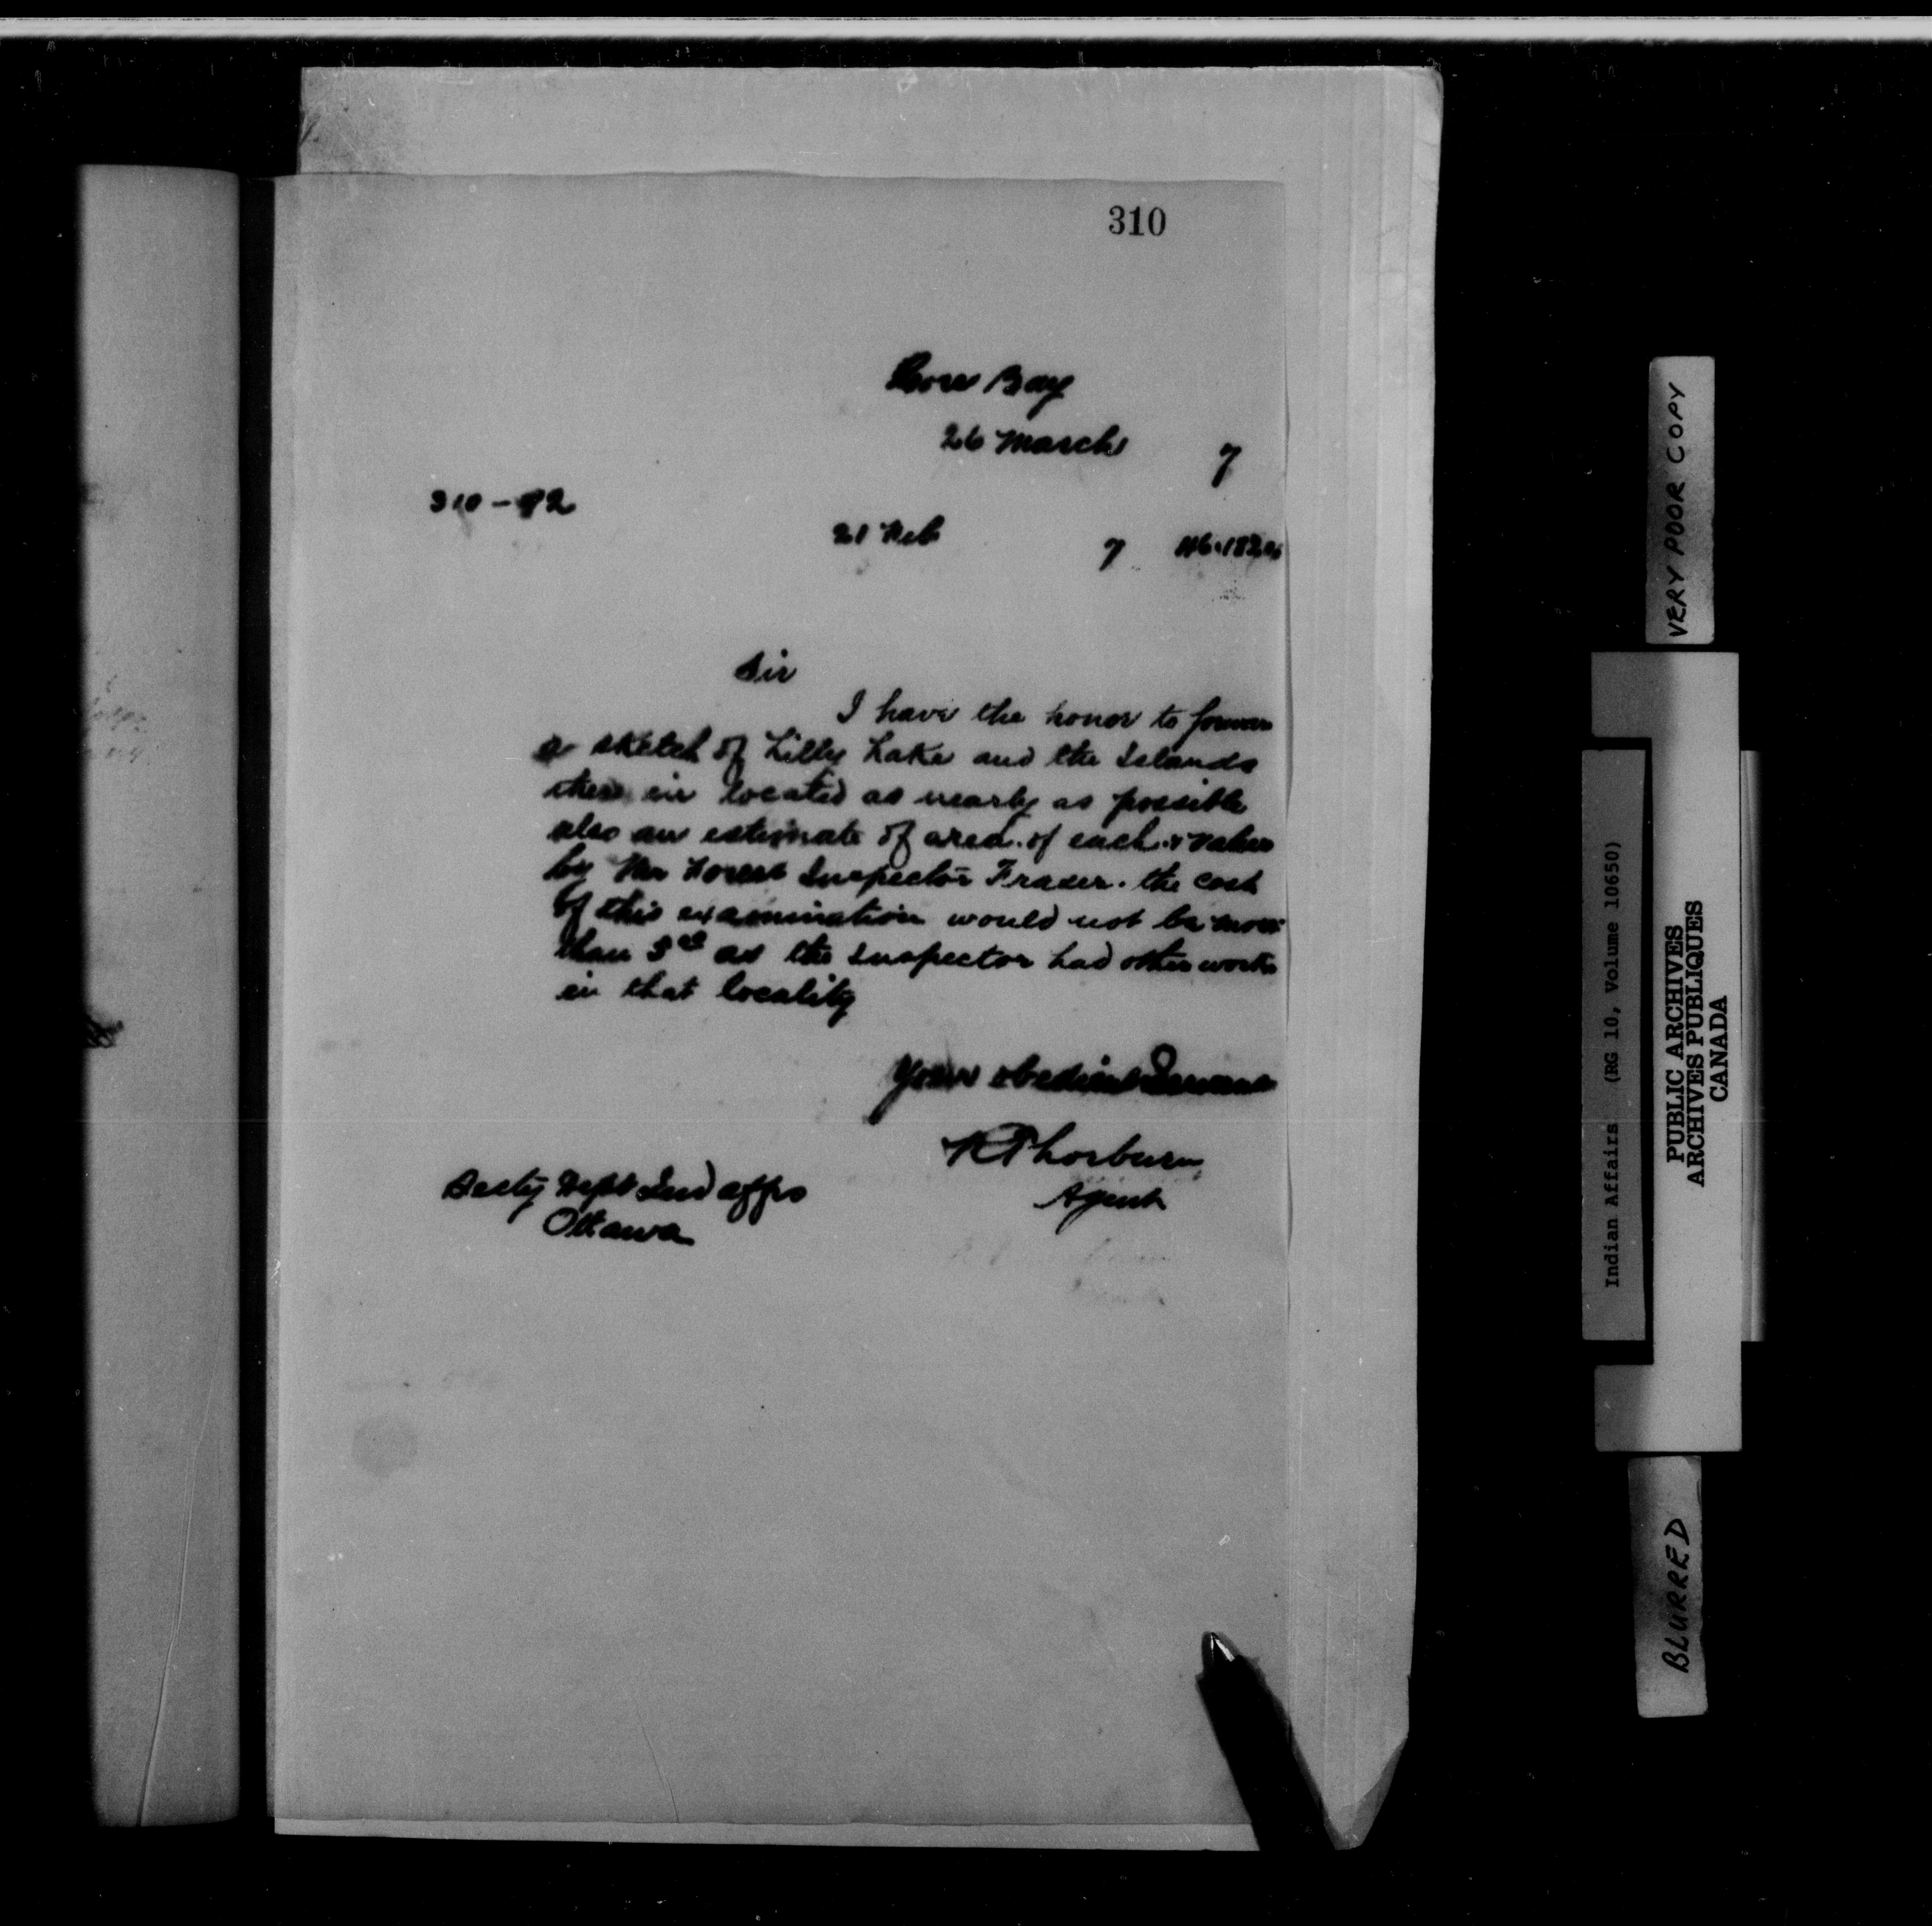 310
Gore Bay
26 March 7
310-92
21 Feb 7
Sir
I have the honor to forward
a sketch of Lilly Lake and the Islands
there in located as nearly as possible
also an estimate of area of each & value
by the Forest Inspector Fraser. the cost
of this examination would not be more
than 3⁰⁰ as the Inspector had other work
in that locality
Your obedient Servant
R Thorburn
Agent
Secty Dept Ind affrs
Ottawa
VERY POOR COPY
Indian Affairs (RG 10, Volume 10650)
PUBLIC ARCHIVES
ARCHIVES PUBLIQUES
CANADA
BLURRED